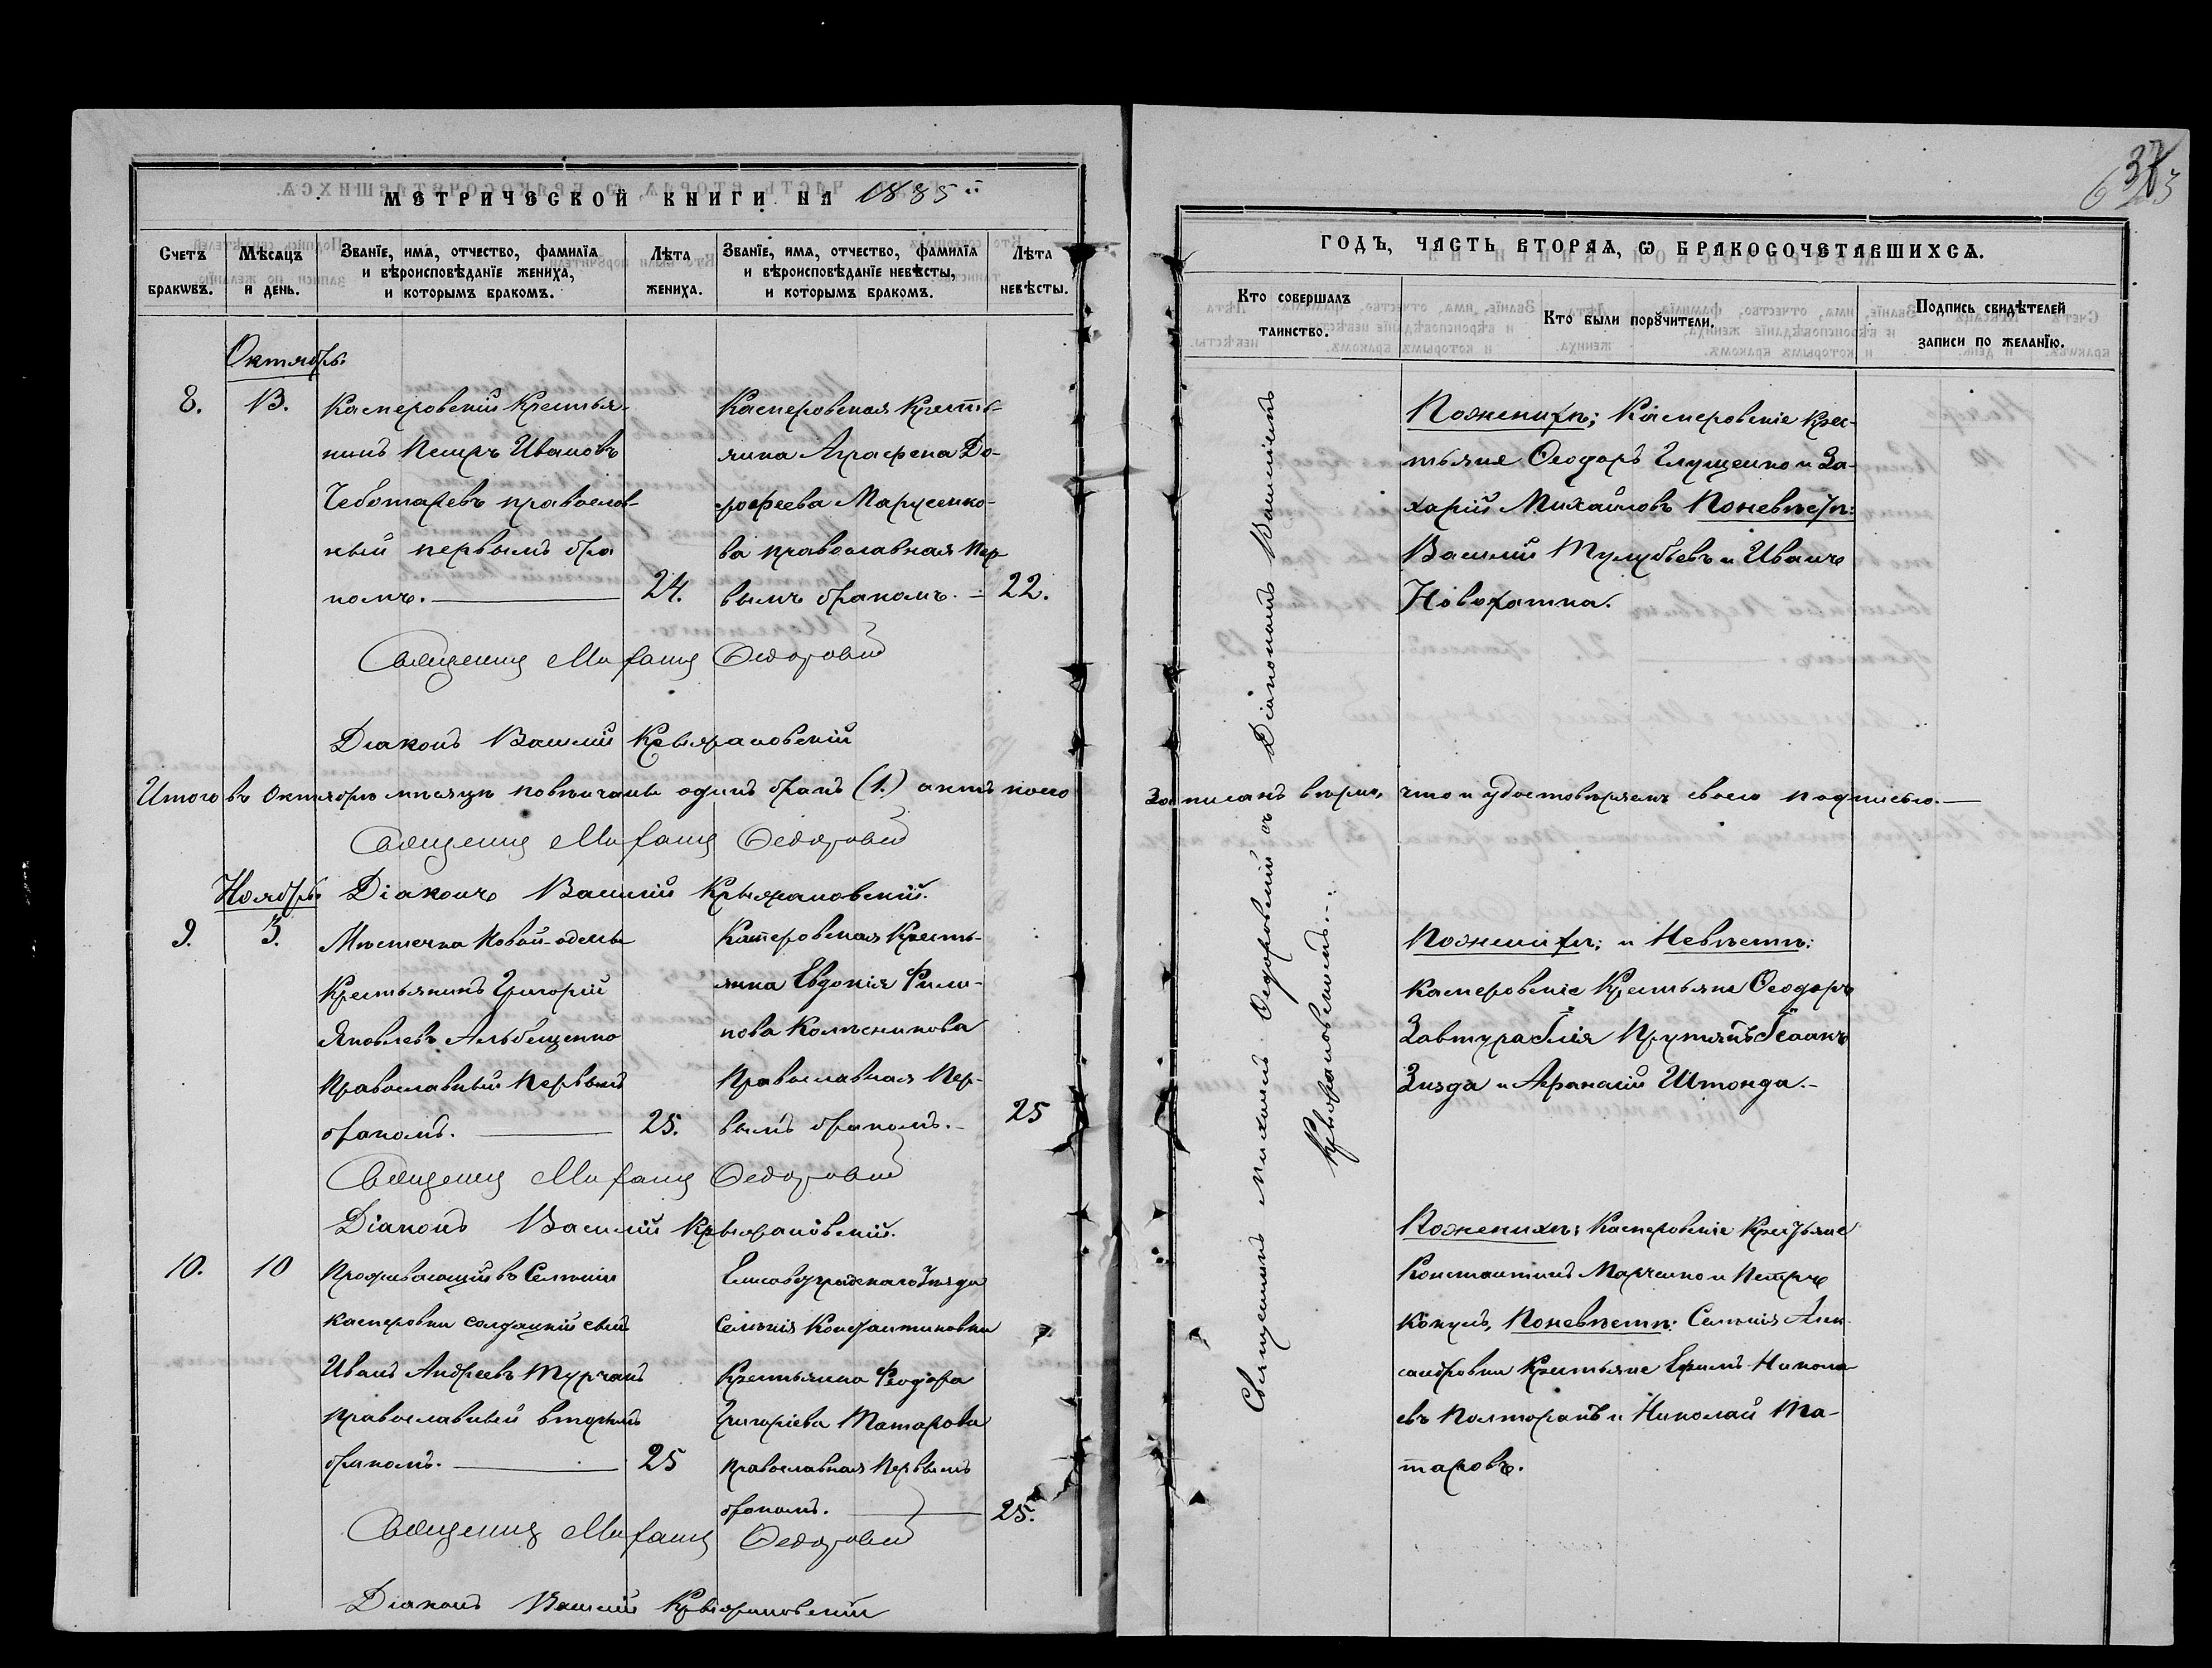 МЕТРИЧЕСКОЙ КНИГИ НА 1885й
Счетъ браковъ.
Мѣсяцъ и день.
Званіе, имя, отчество, фамилія и вѣроисповѣданіе жениха, и которымъ бракомъ.
Лѣта жениха.
Званіе, имя, отчество, фамилія и вѣроисповѣданіе невѣсты, и которымъ бракомъ.
Лѣта невѣсты.
Октябрь.
8.
13.
Касперовскій Крестья-
нинъ Петръ Ивановъ
Чеботаревъ православ-
ный первымъ бра
комъ.
24.
Касперовская Кресть-
янка Аграфена До-
рофеева Марусенко-
ва православная пер
вымъ бракомъ.
22.
Священник Михаил Федорович
Діаконъ Василій Крыжановскій
Итого въ Октябрѣ мѣсяцѣ повѣнчаны одинъ бракъ (1.) актъ коего
Священник Михаил Федорович
Ноябрь.
Діаконъ Василій Крыжановскій.
9.
3.
Мѣстечка Новой-одессы
Крестьянинъ Григорій
Яковлевъ Альбещенко
Православный Первымъ
бракомъ.
25.
Касперовская Кресть-
янка Евдокія Фили-
пова Колѣсникова
Православная Пер-
вымъ бракомъ.
25
Священник Михаил Федорович
Діаконъ Василій Крыжановскій.
10.
10
Проживающій въ Селеніи
Касперовки солдацкій сынъ
Иванъ Андреевъ Турчакъ
православный вторымъ
бракомъ.
25
Елисаветградскаго Уѣзда
Селенія Константиновки
Крестьянка Феодора
Григоріева Татарова
православная Первымъ
бракомъ.
25.
Священник Михаил Федорович
Діаконъ Василій Крыжановскій
ГОДЪ, ЧАСТЬ ВТОРАЯ, Ѡ БРАКОСОЧЕТАВШИХСЯ.
Кто совершалъ таинство.
Кто были поручители.
Подпись свидѣтелей записи по желанію.
Священникъ Михаилъ Федоровскій съ Діакономъ Василіемъ
Крыжановскимъ.
Поженихѣ: Касперовскіе Крес-
тьяне Ѳеодоръ Глущенко и За-
харій Михайловъ Поневѣстѣ:
Василій Тулубьевъ и Иванъ
Новохатка.
записанъ вѣрно, что и удостовѣряемъ своею подписью.
Поженихѣ: и Невѣстѣ:
Касперовскіе Крестьяне Ѳеодоръ
Завтура Илія Прутянъ Ісаакъ
Зизда и Афанасій Штонда.
Поженихѣ: Касперовскіе Крестьяне
Константинъ Марченко и Петръ
Кокулъ, Поневѣстѣ: Селенія Алек-
сандровки Крестьяне Ефимъ Никола
евъ Полторакъ и Николай Та-
таровъ.